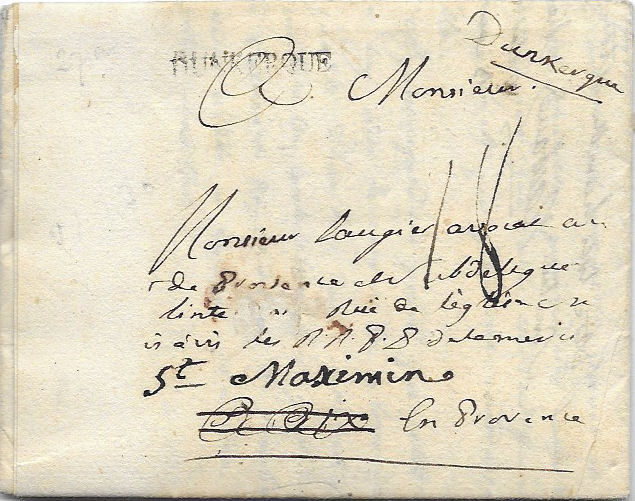 DUNKERQUE
Dunkerque
A Monsieur
18
Monsieur Laugier avocat au
de Provence et subdelegué
rue de
vis à vis les R.R. P.P. de la merci
St Maximin
A Aix En Provence